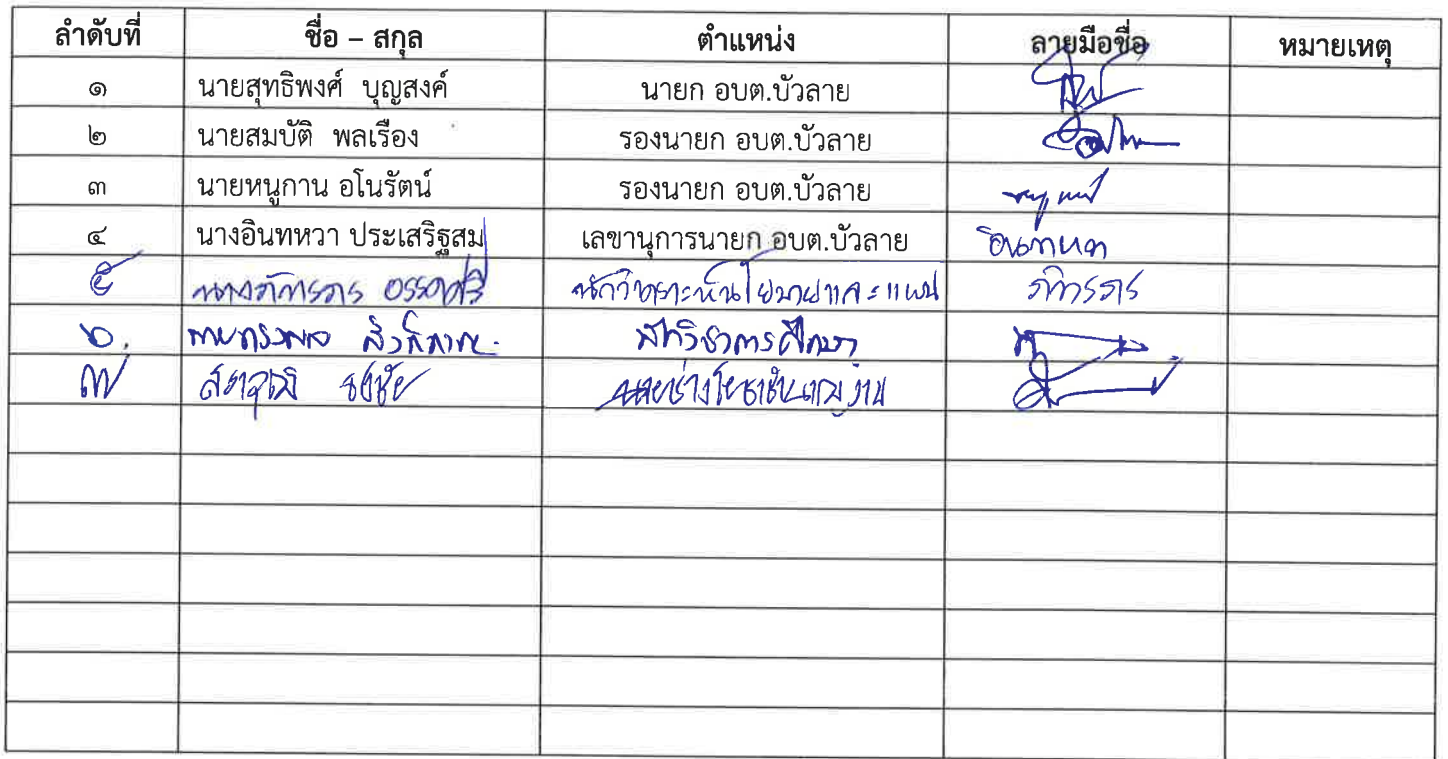 ลำดับที่ ชื่อ – สกุล ตำแหน่ง ลายมือชื่อ หมายเหตุ
๑ นายสุทธิพงศ์ บุญสงค์ นายก อบต.บัวลาย
๒ นายสมบัติ พลเรือง รองนายก อบต.บัวลาย
๓ นายหนูกาน อโนรัตน์ รองนายก อบต.บัวลาย
๔ นางอินทหวา ประเสริฐสม เลขานุการนายก อบต.บัวลาย อินทหวา
๕ นักวิเคราะห์นโยบายและแผน
๖. นักวิชาการศึกษา
๗ ธงชัย นายช่างโยธาชำนาญงาน